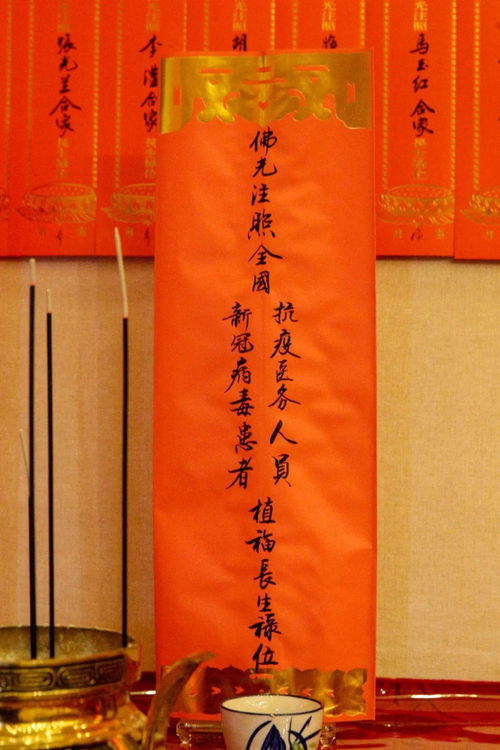 佛光注照全國
抗疫医务人員
新冠病毒患者
植福長生祿位
馬玉红合家
李瀅合家
張光蘭合家